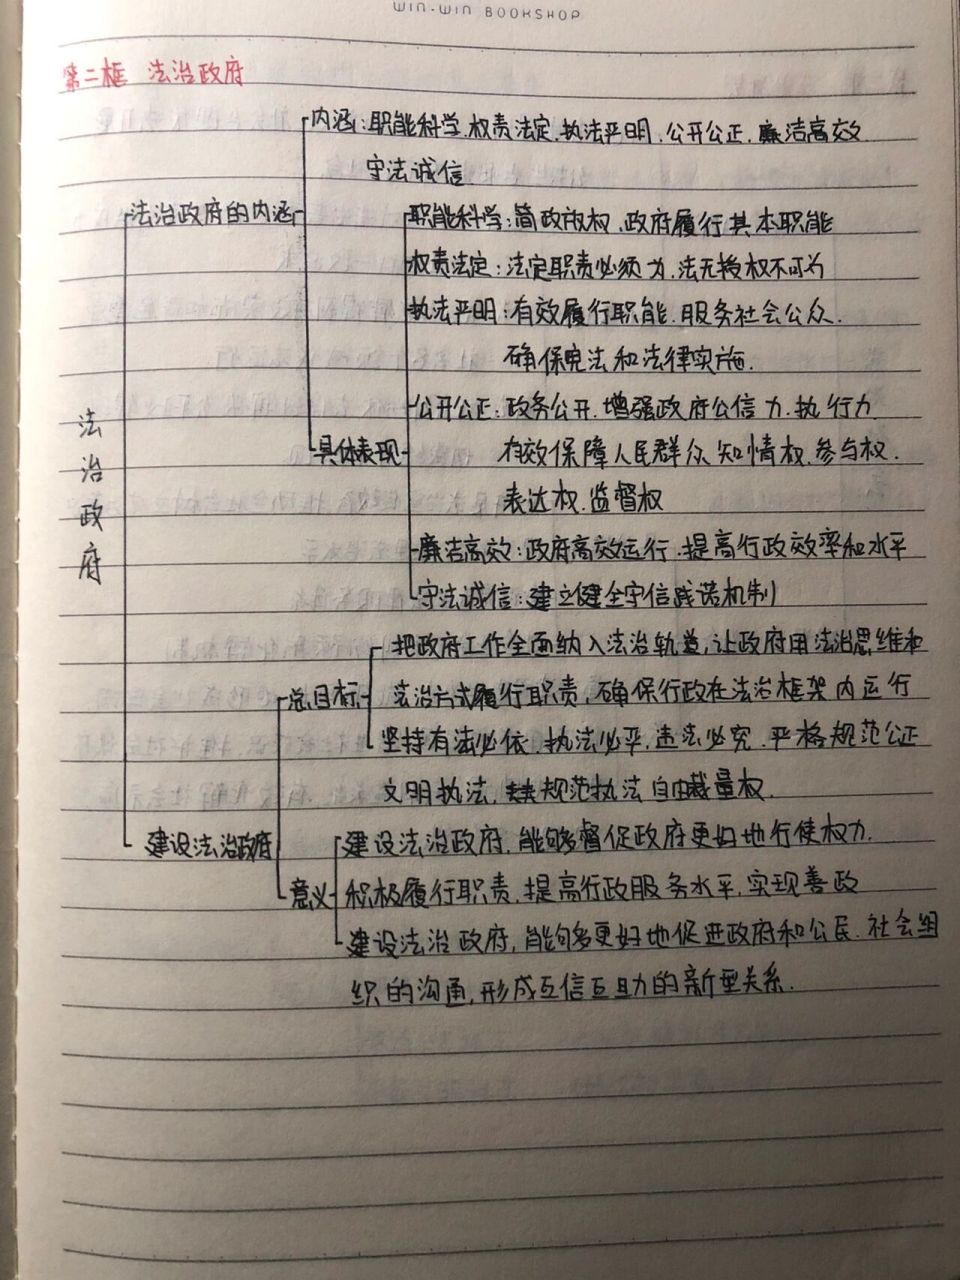 WIN-WIN BOOKSHOP
第二框 法治政府
内涵:职能科学.权责法定.执法严明.公开公正.廉洁高效
守法诚信.
法治政府的内涵
职能科学:简政放权.政府履行其本职能
权责法定:法定职责必须为.法无授权不可为
执法严明:有效履行职能.服务社会公众.
确保宪法和法律实施.
公开公正:政务公开.增强政府公信力.执行力
具体表现
有效保障人民群众知情权.参与权.
表达权.监督权
廉洁高效:政府高效运行.提高行政效率和水平
守法诚信:建立健全守信践诺机制
法治政府
把政府工作全面纳入法治轨道,让政府用法治思维和
总目标
法治方式履行职责,确保行政在法治框架内运行
坚持有法必依.执法必严.违法必究.严格规范公正
文明执法.规范执法自由裁量权.
建设法治政府
建设法治政府,能够督促政府更好地行使权力.
意义
积极履行职责,提高行政服务水平,实现善政
建设法治政府,能够更好地促进政府和公民.社会组
织的沟通,形成互信互助的新型关系.